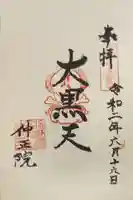 奉拝
令和二年八月十六日
大黒天
神正院